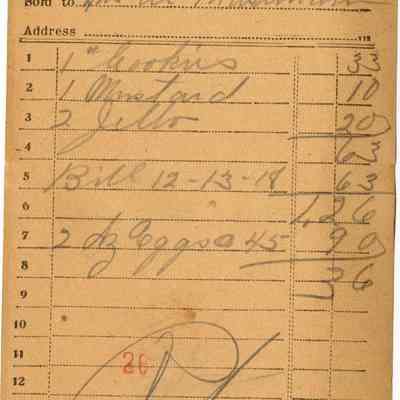 Sold to
Address
1 1 " Cookies 33
2 1 Mustard 10
3 2 Jello 20
4 63
5 Bill 12-13-18 63
6 1,26
7 2 dz Eggs @ 45 90
8 36
9
10
11 26
12